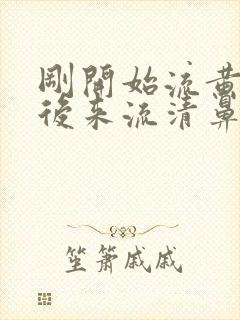 剛開始流黃
後來流清鼻
笙簫戚戚